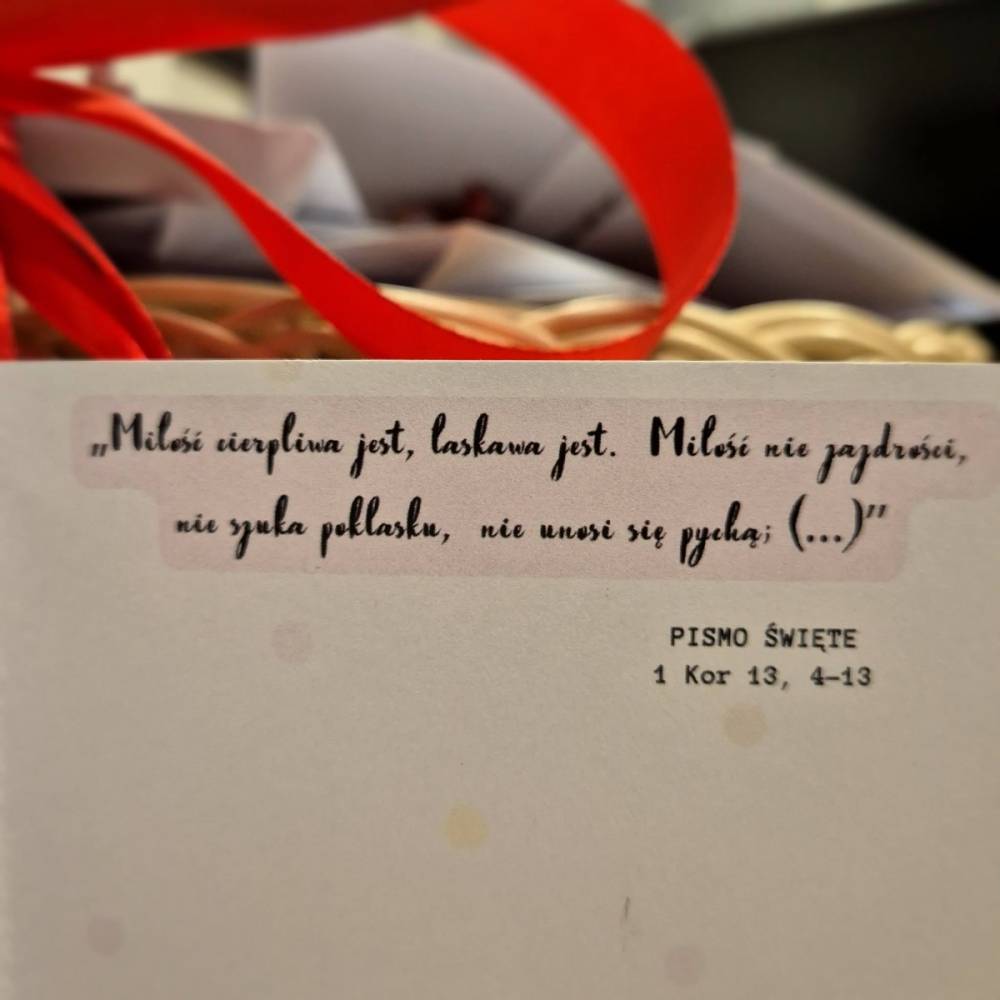 „Miłość cierpliwa jest, łaskawa jest. Miłość nie zazdrości,
nie szuka poklasku, nie unosi się pychą; (...)”
PISMO ŚWIĘTE
1 Kor 13, 4–13